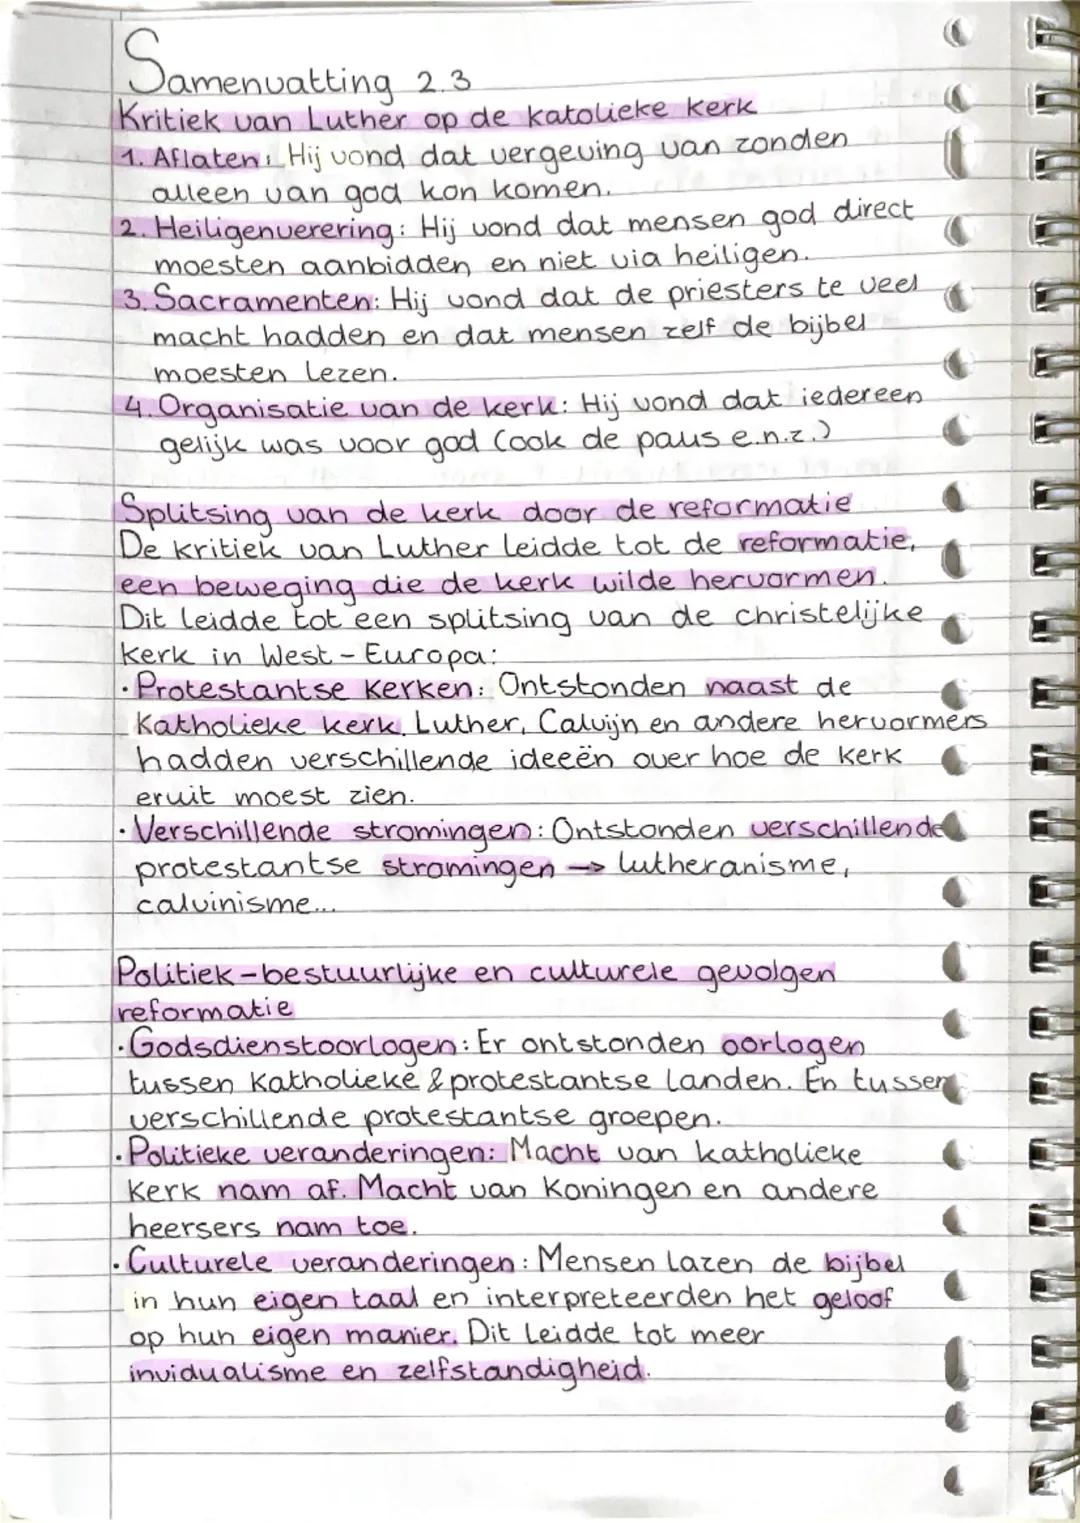 Samenvatting 2.3
Kritiek van Luther op de katolieke kerk
1. Aflaten: Hij vond dat vergeving van zonden
alleen van god kon komen.
2. Heiligenverering: Hij vond dat mensen god direct
moesten aanbidden en niet via heiligen.
3. Sacramenten: Hij vond dat de priesters te veel
macht hadden en dat mensen zelf de bijbel
moesten lezen.
4. Organisatie van de kerk: Hij vond dat iedereen
gelijk was voor god (ook de paus e.n.z.)
Splitsing van de kerk door de reformatie
De kritiek van Luther leidde tot de reformatie,
een beweging die de kerk wilde hervormen.
Dit leidde tot een splitsing van de christelijke
kerk in West-Europa:
· Protestantse kerken: Ontstonden naast de
Katholieke kerk. Luther, Calvijn en andere hervormers
hadden verschillende ideeën over hoe de kerk
eruit moest zien.
· Verschillende stromingen: Ontstonden verschillende
protestantse stromingen → lutheranisme,
calvinisme...
Politiek-bestuurlijke en culturele gevolgen
reformatie
· Godsdienstoorlogen: Er ontstonden oorlogen
tussen Katholieke & protestantse landen. En tussen
verschillende protestantse groepen.
· Politieke veranderingen: Macht van katholieke
Kerk nam af. Macht van Koningen en andere
heersers nam toe.
· Culturele veranderingen: Mensen lazen de bijbel
in hun eigen taal en interpreteerden het geloof
op hun eigen manier. Dit leidde tot meer
invidualisme en zelfstandigheid.